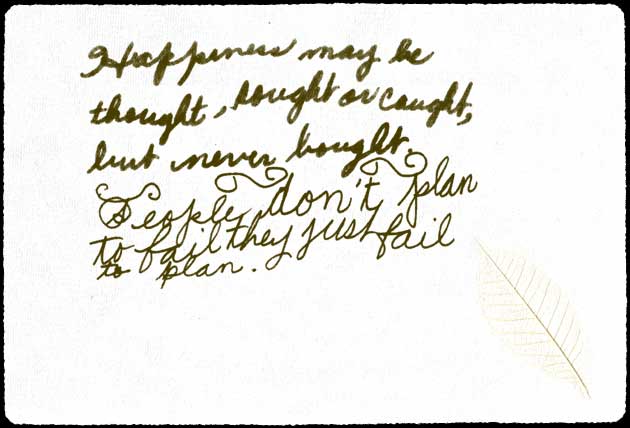 Happiness may be
thought, sought or caught,
but never bought.
People don't plan
to fail they just fail
to plan.